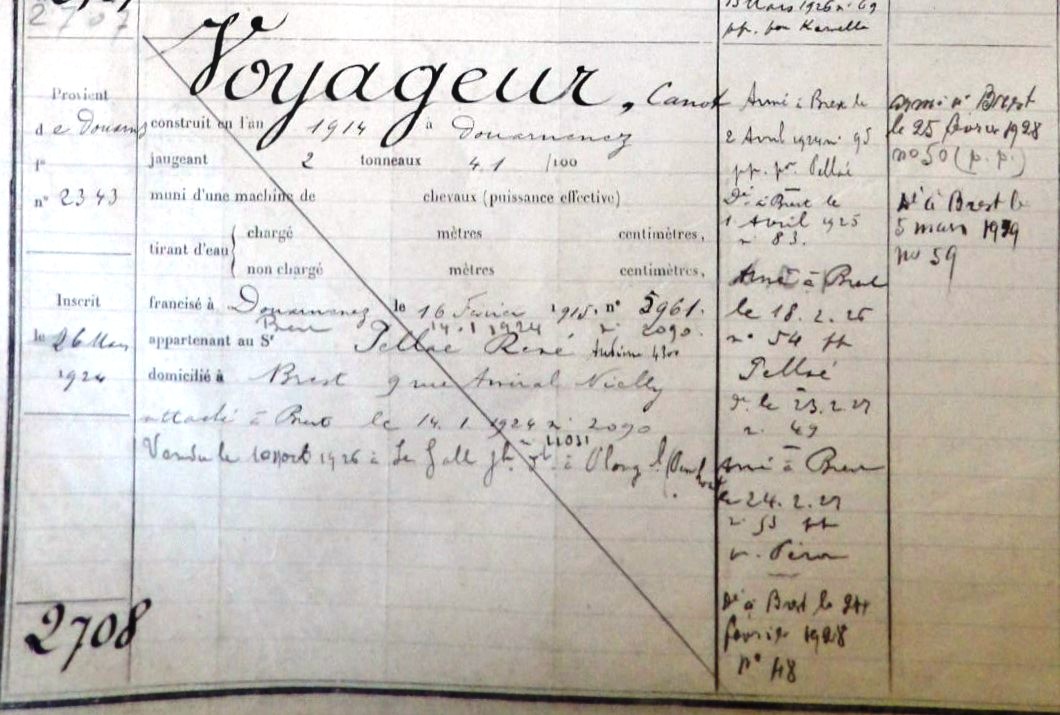 2707
Voyageur, Canot
Provient
de Douarnz
f°
n° 2343
Inscrit
le 26 Mars
1924
2708
construit en l'an 1914 à Douarnenez
jaugeant 2 tonneaux 41 /100
muni d'une machine de chevaux (puissance effective)
tirant d'eau
chargé mètres centimètres,
non chargé mètres centimètres,
francisé à Douarnenez le 16 Février 1915. n° 5961.
Brest 14.1.1924 n° 2090.
appartenant au Sr Pellaé René
domicilié à Brest 9 rue Amiral Nielly
attaché à Brest le 14.1.1924 n° 2090
n° 11031
Vendu le 10 mars 1926 à Le Gall à
13 Mars 1926 n° 69
pp. par
Armé à Brest le
2 Avril 1924 n° 95
pp. pr. Pellaé
Dé à Brest le
1 Avril 1925
n° 83.
Armé à Brest
le 18.2.26
n° 54 pp
Pellaé
Dé le 23.2.27
n. 49
Armé à Brest
le 24.2.27
n° 53 pp
Dé à Brest le 24
février 1928
n° 48
armé à Brest
le 25 février 1928
no 50 (p.p.)
Dé à Brest le
5 mars 1929
no 59